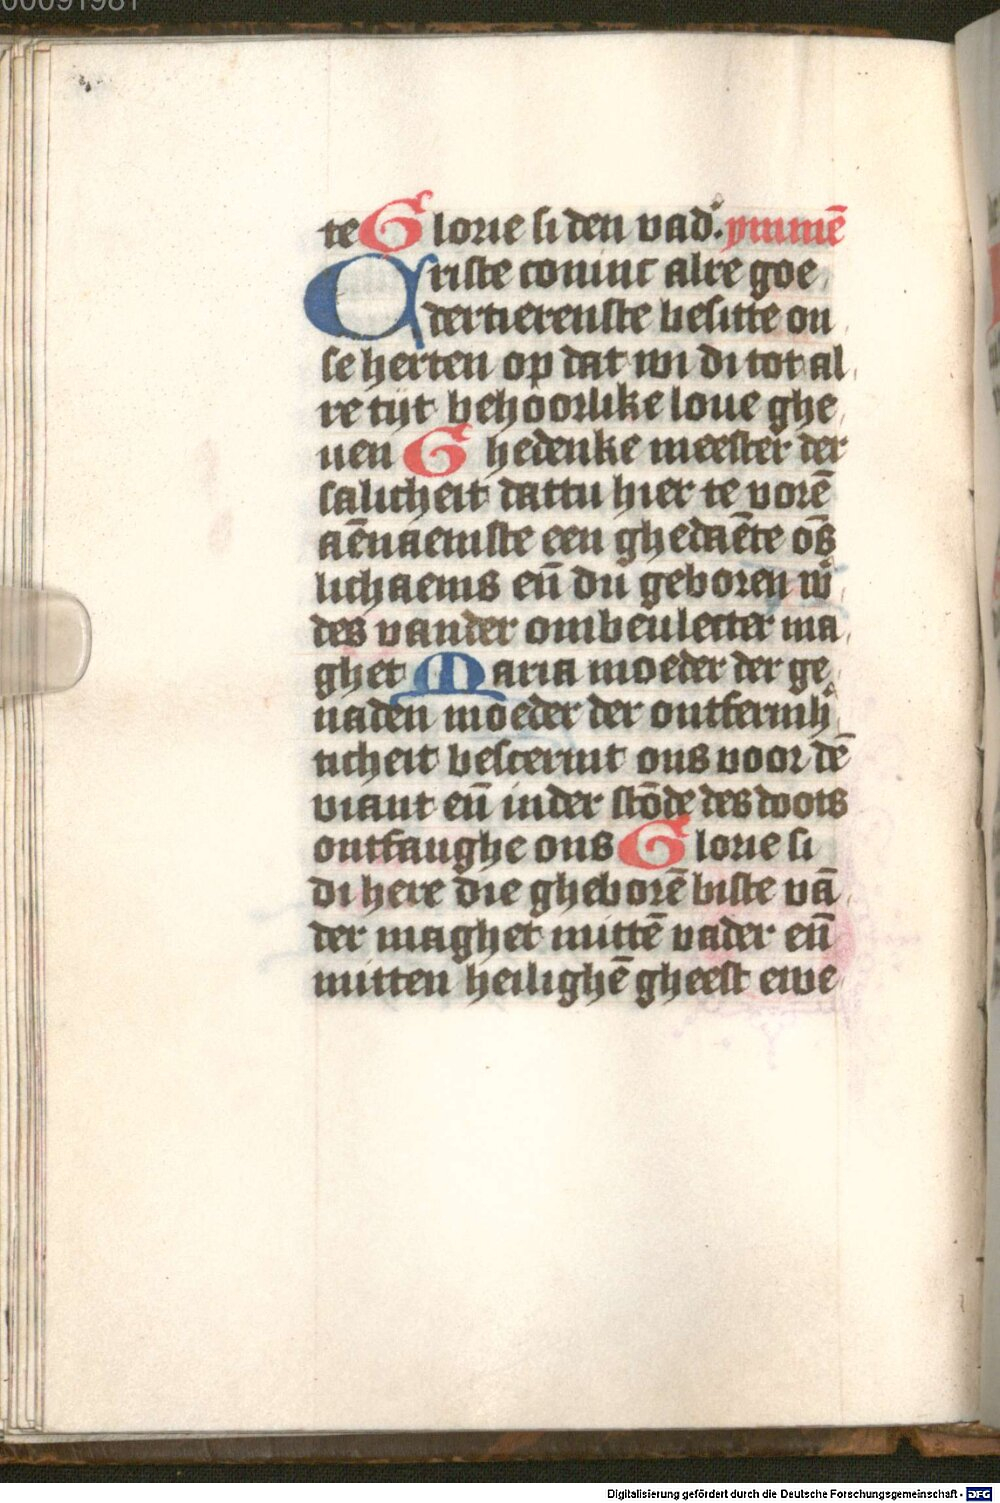 00091981
te Glorie si den vad'. ymmē
Criste coninc alre goe
dertierenste besitte on
se herten op dat wi di tot al
re tijt behoorlike loue ghe
uen Ghedenke meester der
salicheit dattu hier te vorē
aēnaemste een ghedaēte ōs
lichaems eñ du geboren w
des vander ombeulecter ma
ghet Maria moeder der ge
naden moeder der ontfermh
ticheit bescermt ons voor dē
viant eñ inder stōde des doots
ontfanghe ons Glorie si
di here die gheborē biste vā
der maghet mittē vader eñ
mitten heilighē gheest ewe
Digitalisierung gefördert durch die Deutsche Forschungsgemeinschaft - DFG